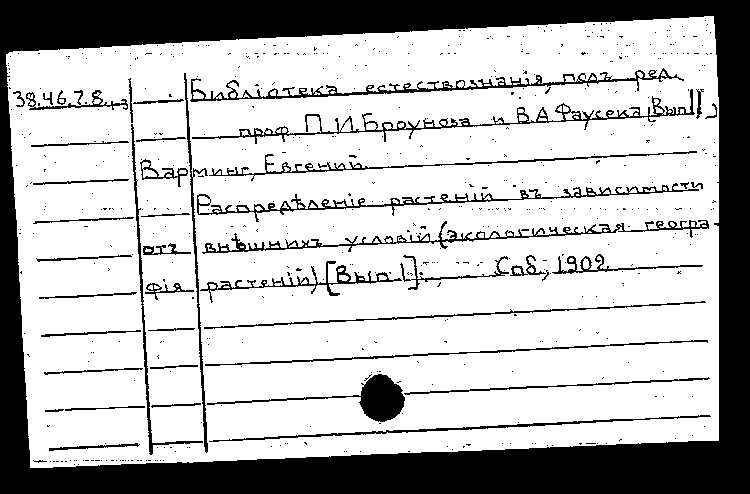 38.46.7.8.1-3 Библіотека естествознанія, подъ ред.
проф. П.И.Броунова и В.А.Фаусека [Вып II]
Варминг, Евгений.
Распредѣленіе растеній въ зависимости
отъ внѣшнихъ условій (экологическая геогра-
фія растеній) [Вып 1]. Спб., 1902